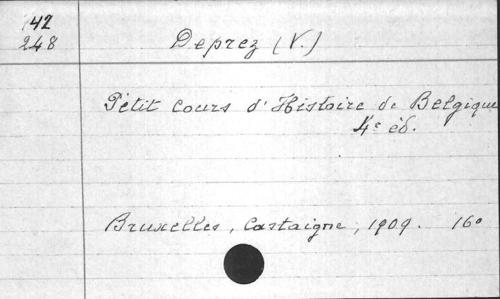 142
248
Deprez (V.)
Petit Cours d'Histoire de Belgique
4e éd.
Bruxelles, Castaigne, 1909. 16o